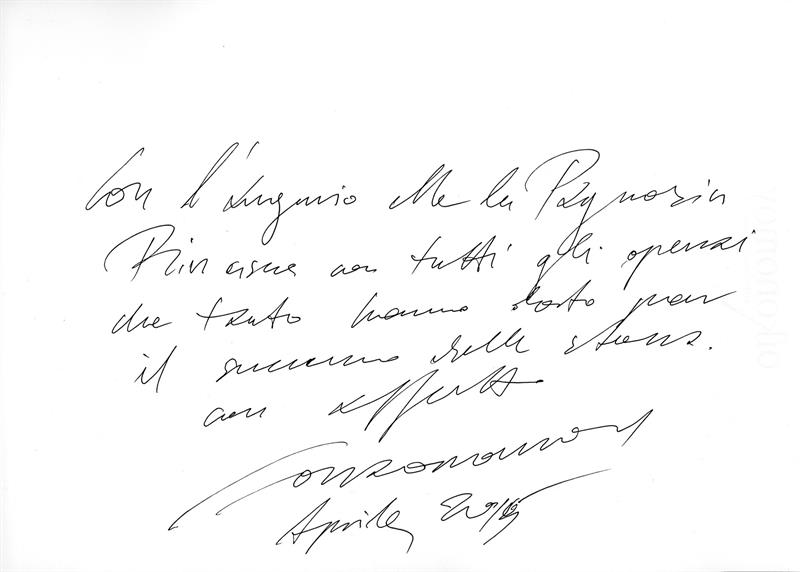 Con l'augurio che la Pignosin
Rinasca con tutti gli operai
che tanto hanno dato per
il successo delle stesse.
con affetto
Aprile 2015